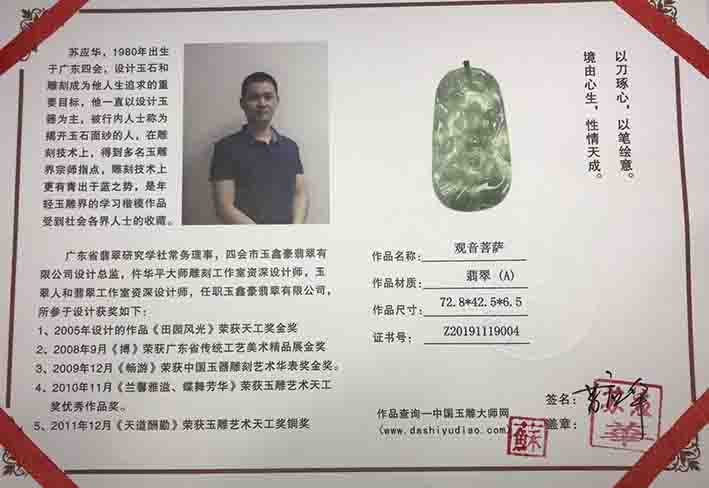 苏应华，1980年出生
于广东四会，设计玉石和
雕刻成为他人生追求的重
要目标，他一直以设计玉
器为主，被行内人士称为
揭开玉石面纱的人，在雕
刻技术上，得到多名玉雕
界宗师指点，雕刻技术上
更有青出于蓝之势，是年
轻玉雕界的学习楷模作品
受到社会各界人士的收藏。
广东省翡翠研究学社常务理事，四会市玉鑫豪翡翠有
限公司设计总监，仵华平大师雕刻工作室资深设计师，玉
翠人和翡翠工作室资深设计师，任职玉鑫豪翡翠有限公司，
所参于设计获奖如下：
1、2005年设计的作品《田园风光》荣获天工奖金奖
2、2008年9月《博》荣获广东省传统工艺美术精品展金奖
3、2009年12月《畅游》荣获中国玉器雕刻艺术华表奖金奖。
4、2010年11月《兰馨雅滋、蝶舞芳华》荣获玉雕艺术天工
奖优秀作品奖。
5、2011年12月《天道酬勤》荣获玉雕艺术天工奖铜奖
以刀琢心，以笔绘意。
境由心生，性情天成。
作品名称：观音菩萨
作品材质：翡翠（A）
作品尺寸：72.8*42.5*6.5
证书号：Z20191119004
作品查询一中国玉雕大师网
（www.dashiyudiao.com）
签名：苏应华
盖章：
蘇